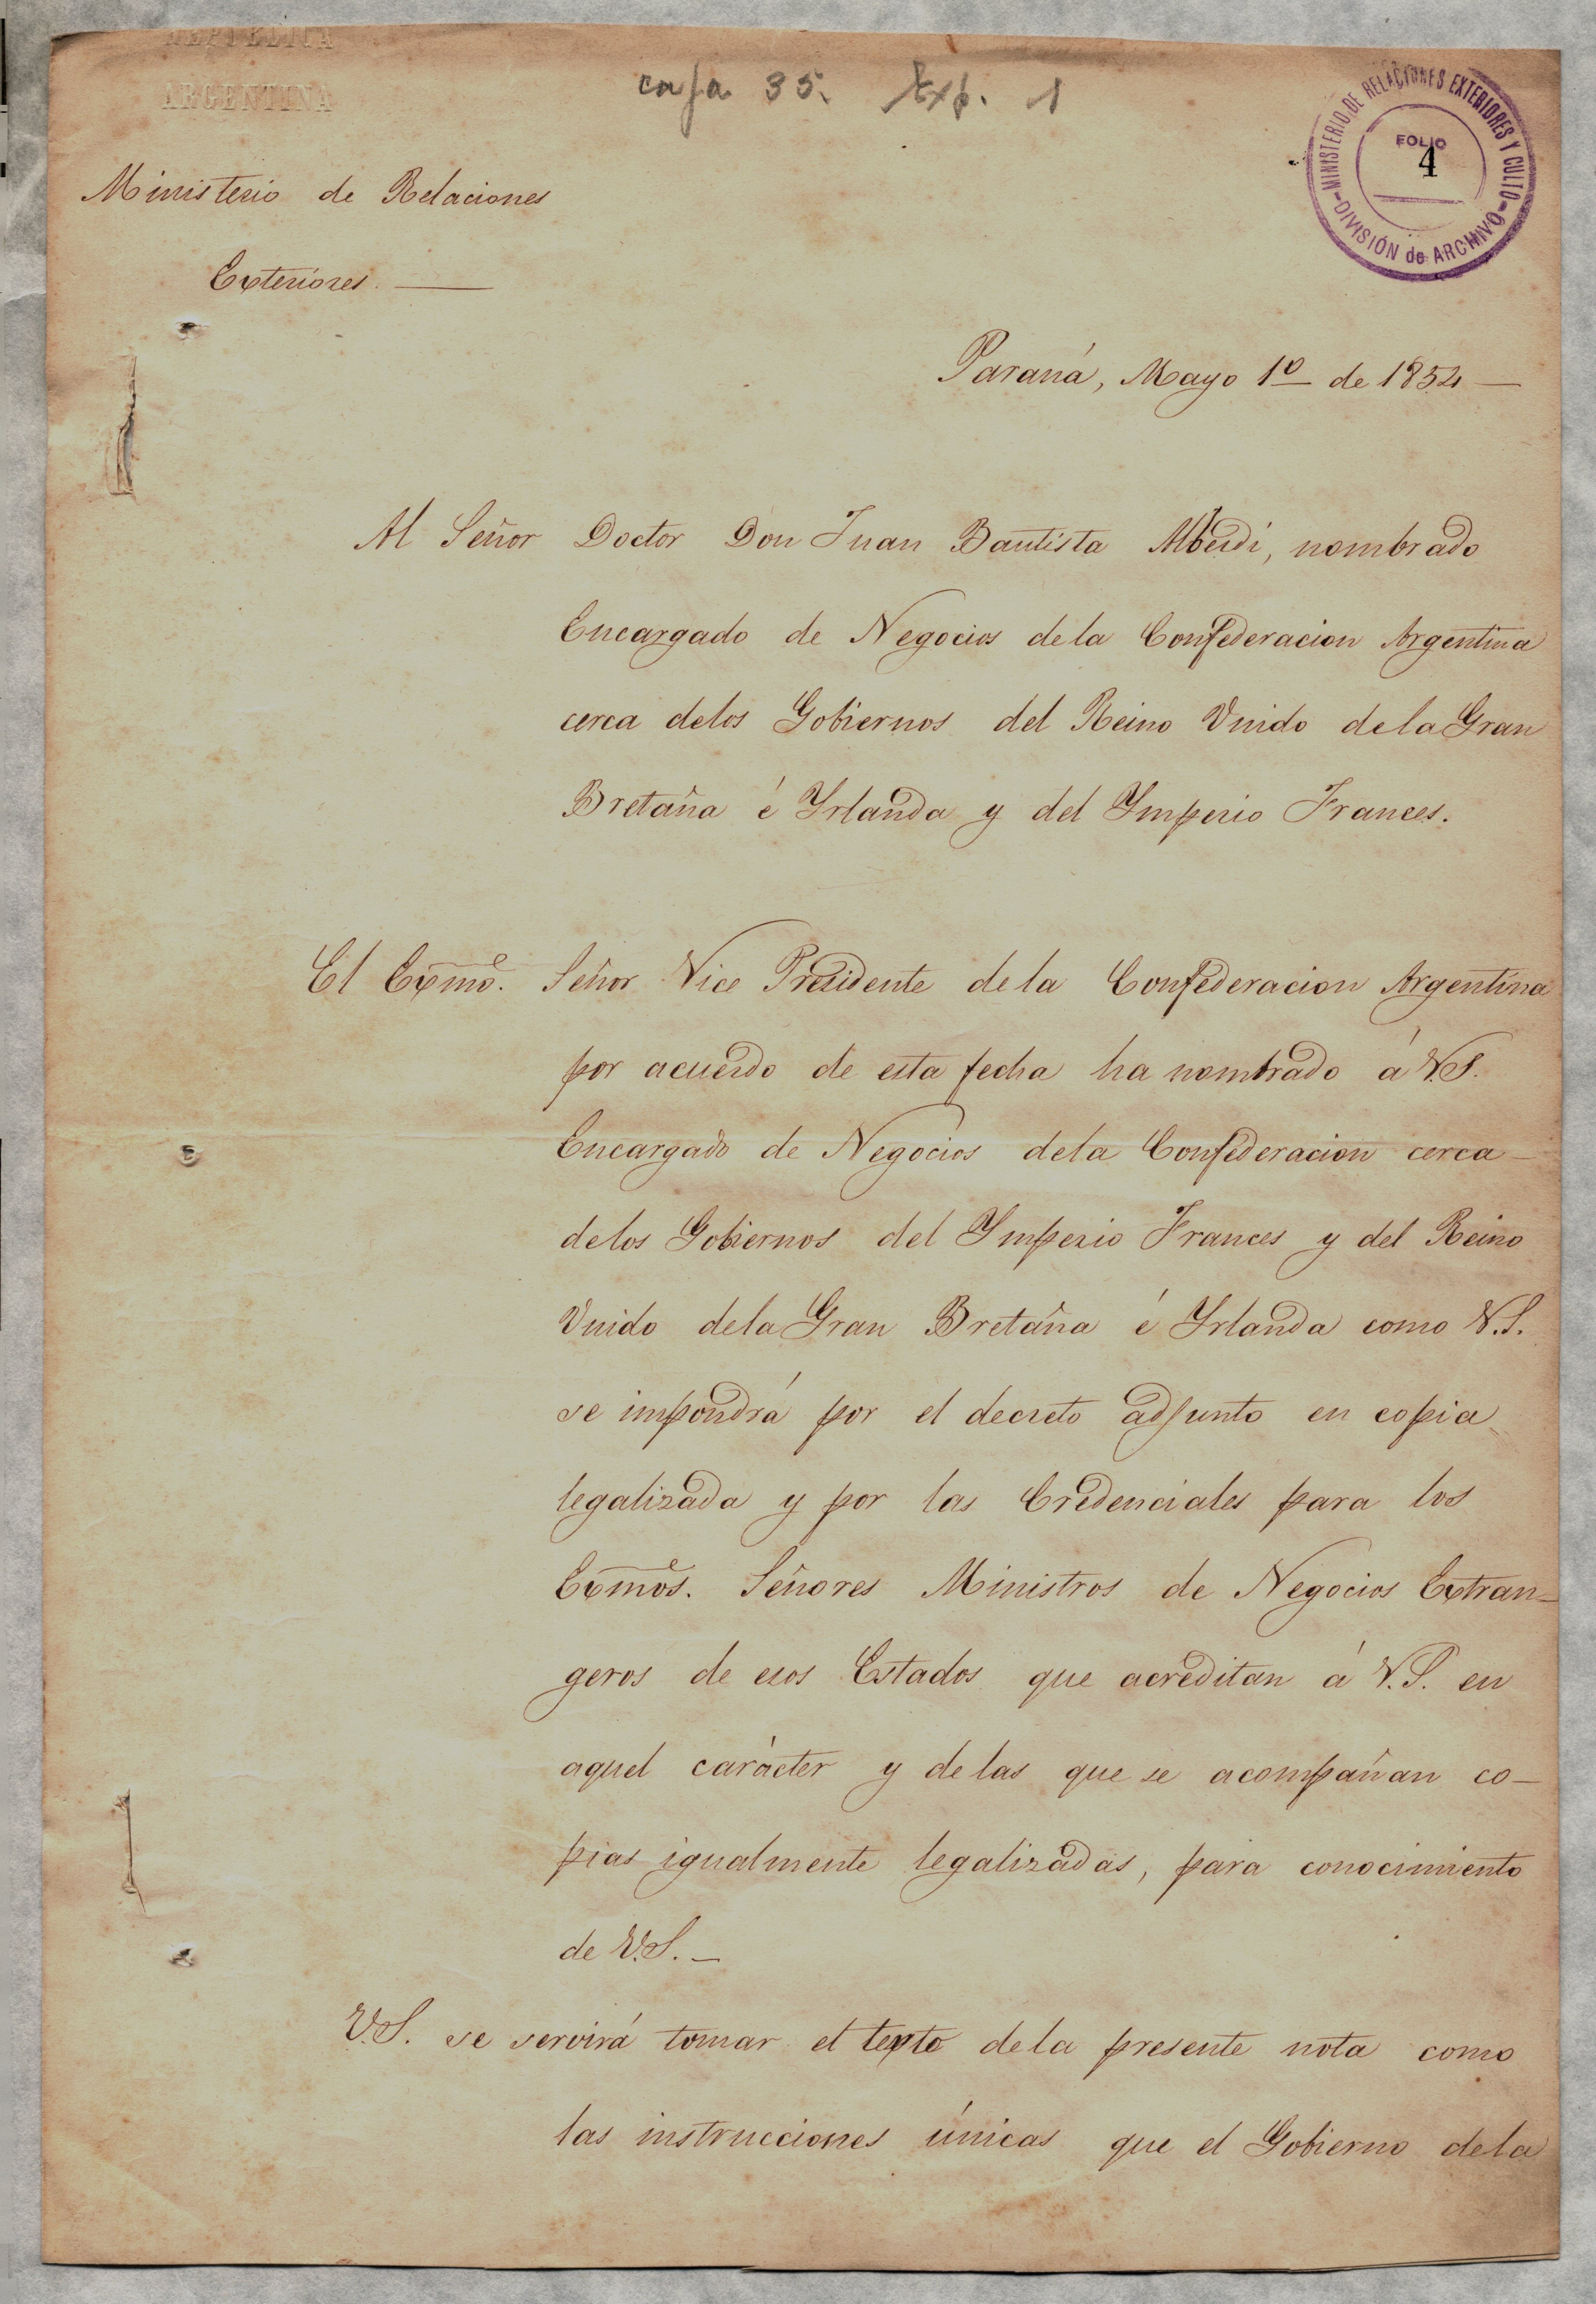 REPUBLICA
ARGENTINA
caja 35. Exp. 1
MINISTERIO DE RELACIONES EXTERIORES Y CULTO
FOLIO
4
DIVISIÓN de ARCHIVO
Ministerio de Relaciones
Exteriores. —
Paraná, Mayo 1º de 1854 —
Al Señor Doctor Don Juan Bautista Alberdi, nombrado
Encargado de Negocios dela Confederacion Argentina
cerca delos Gobiernos del Reino Unido dela Gran
Bretaña é Yrlanda y del Ymperio Frances.
El Exmo. Señor Vice Presidente de la Confederacion Argentina
por acuerdo de esta fecha ha nombrado á V.S.
Encargado de Negocios dela Confederacion cerca
delos Gobiernos del Ymperio Frances y del Reino
Unido dela Gran Bretaña é Yrlanda como V.S.
se impondrá por el decreto adjunto en copia
legalizada y por las Credenciales para los
Exmos. Señores Ministros de Negocios Extran-
geros de esos Estados que acreditan á V.S. en
aquel carácter y de las que se acompañan co-
pias igualmente legalizadas, para conocimiento
de V.S. —
V.S. se servirá tomar el texto dela presente nota como
las instrucciones únicas que el Gobierno dela